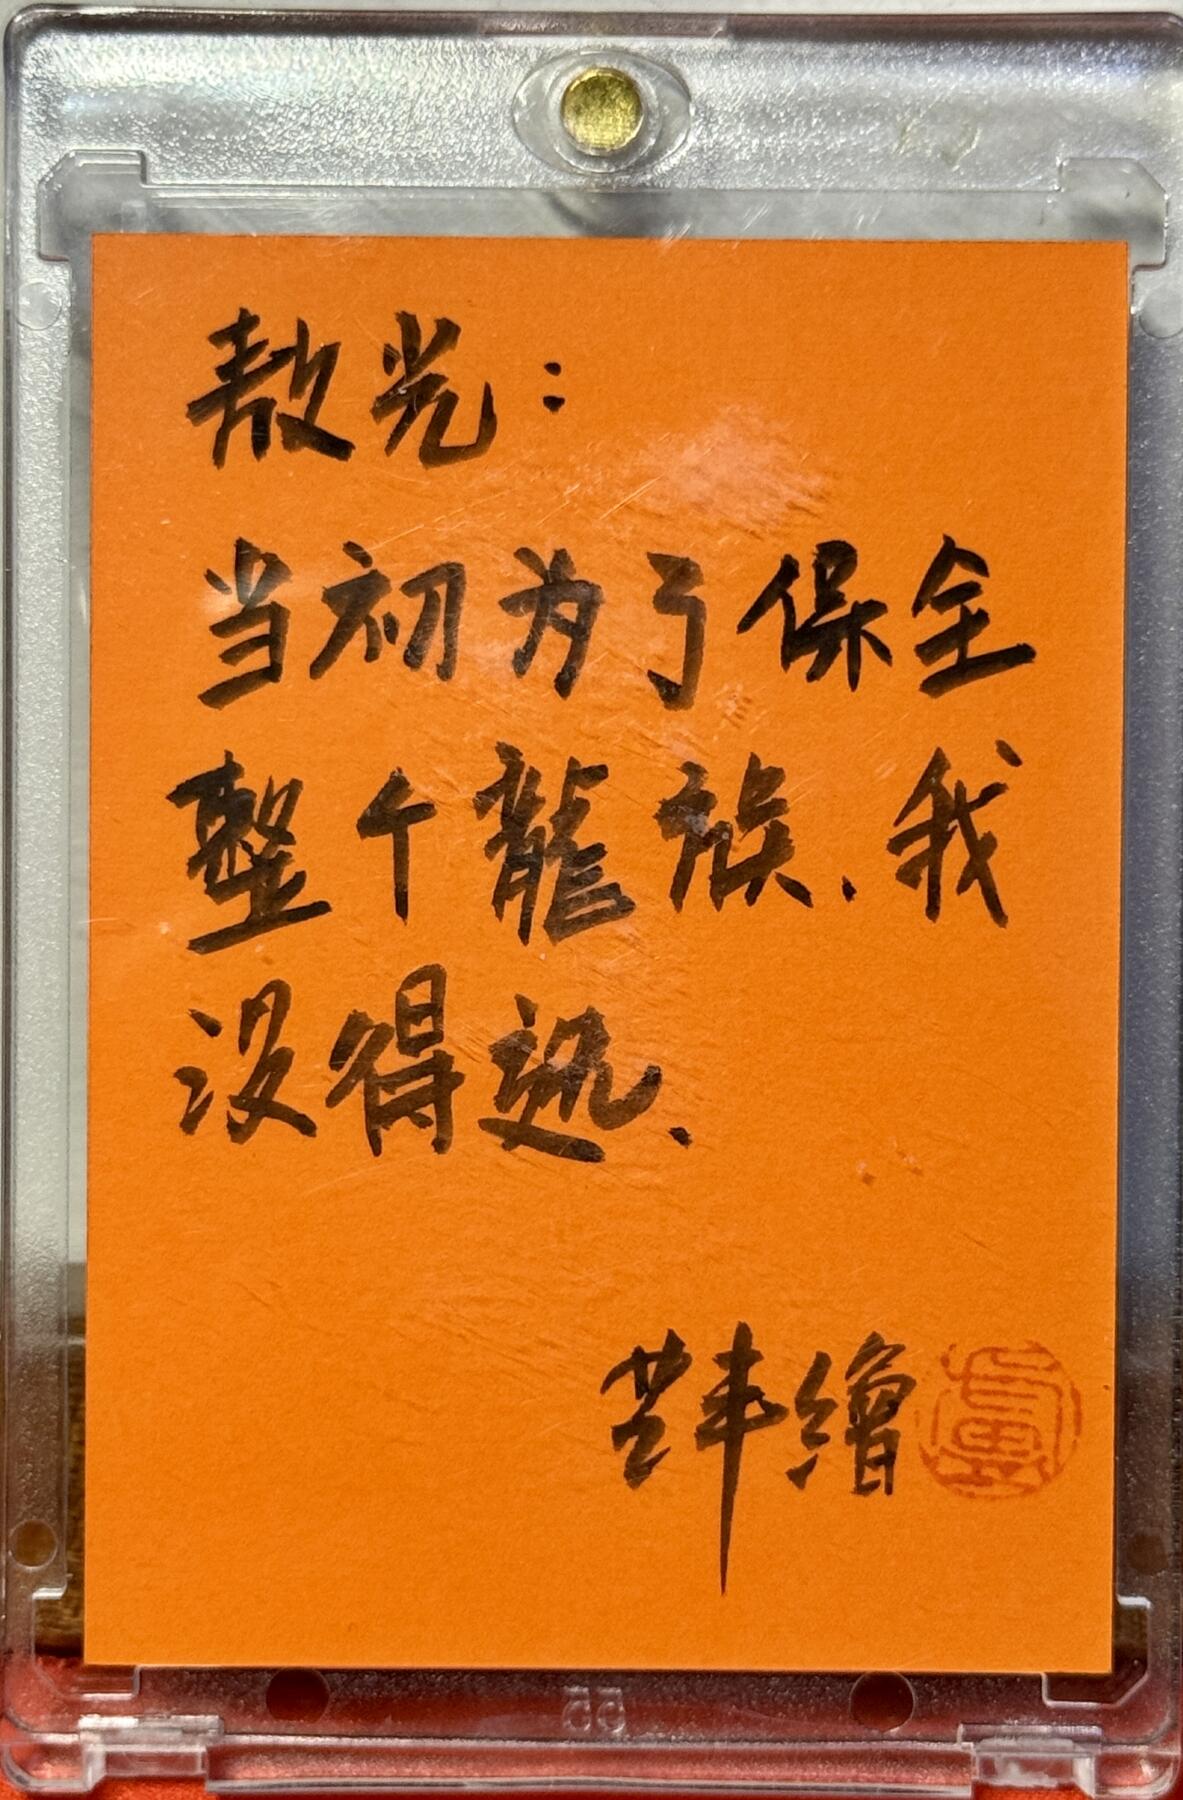 敖光：
当初为了保全
整个龍族.我
没得选.